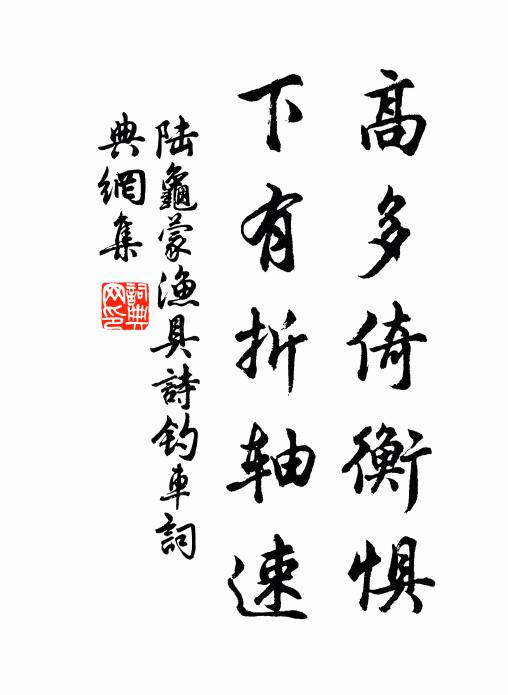 高多倚衡惧
下有折轴速
陆龜蒙渔具詩钓車詞
典網集
詞典网印